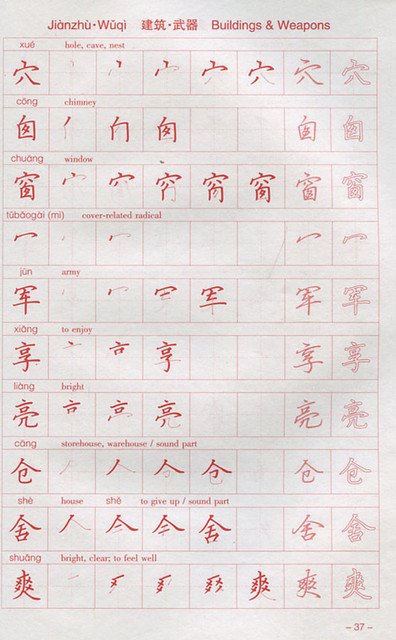 Jiànzhù·Wǔqì 建筑·武器 Buildings & Weapons
xué hole, cave, nest
穴 穴 穴 穴
cōng chimney
囱 囱 囱
chuāng window
窗 窗 窗
tūbǎogài (mì) cover-related radical
冖 冖 冖 冖
jūn army
军 军 军
xiǎng to enjoy
享 享 享
liàng bright
亮 亮 亮
cāng storehouse, warehouse / sound part
仓 人 仓 仓 仓
shè house shě to give up / sound part
舍 人 舍 舍 舍
shuǎng bright, clear; to feel well
爽 爽 爽 爽
– 37 –